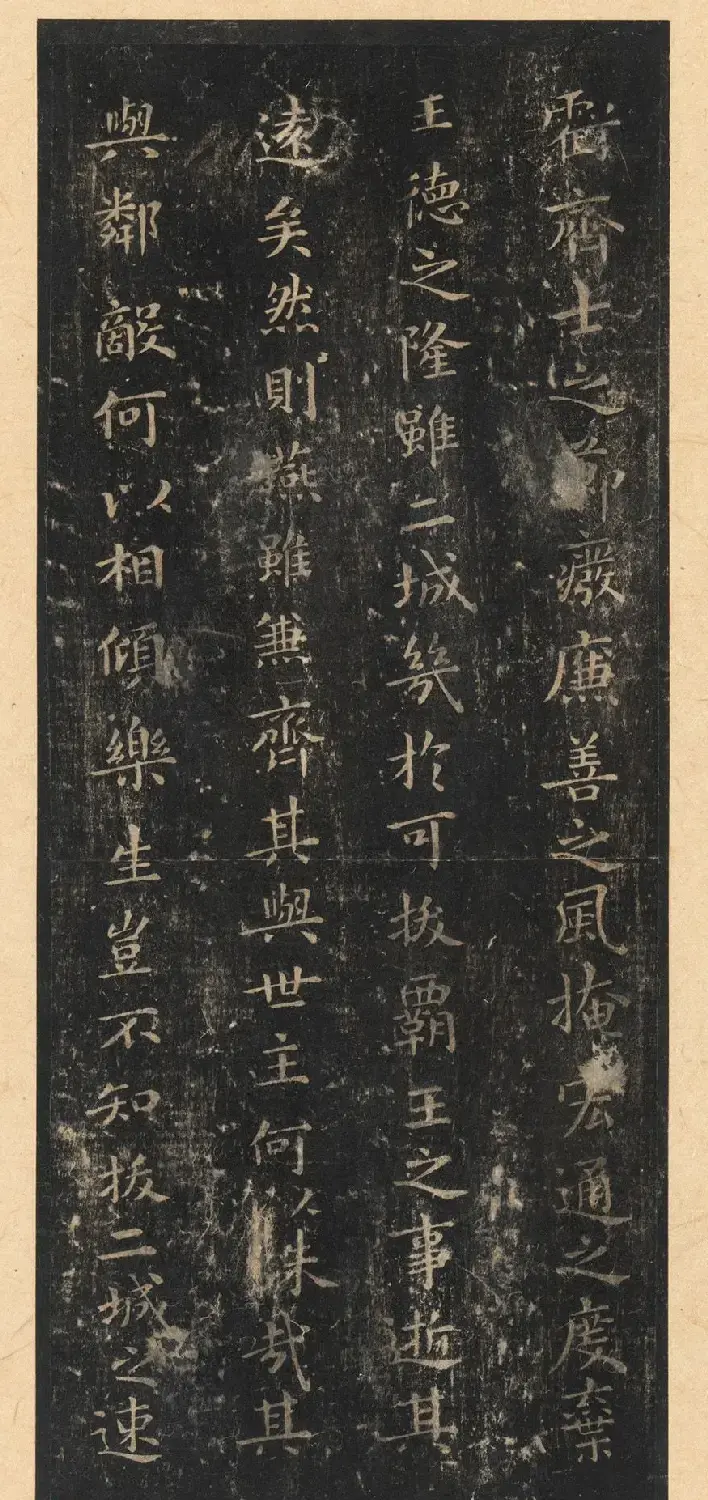 窬齊士之節廢廉善之風掩宏通之度棄
王德之隆雖二城幾於可拔霸王之事逝其
遠矣然則燕雖兼齊其與世主何以殊哉其
與鄰敵何以相傾樂生豈不知拔二城之速